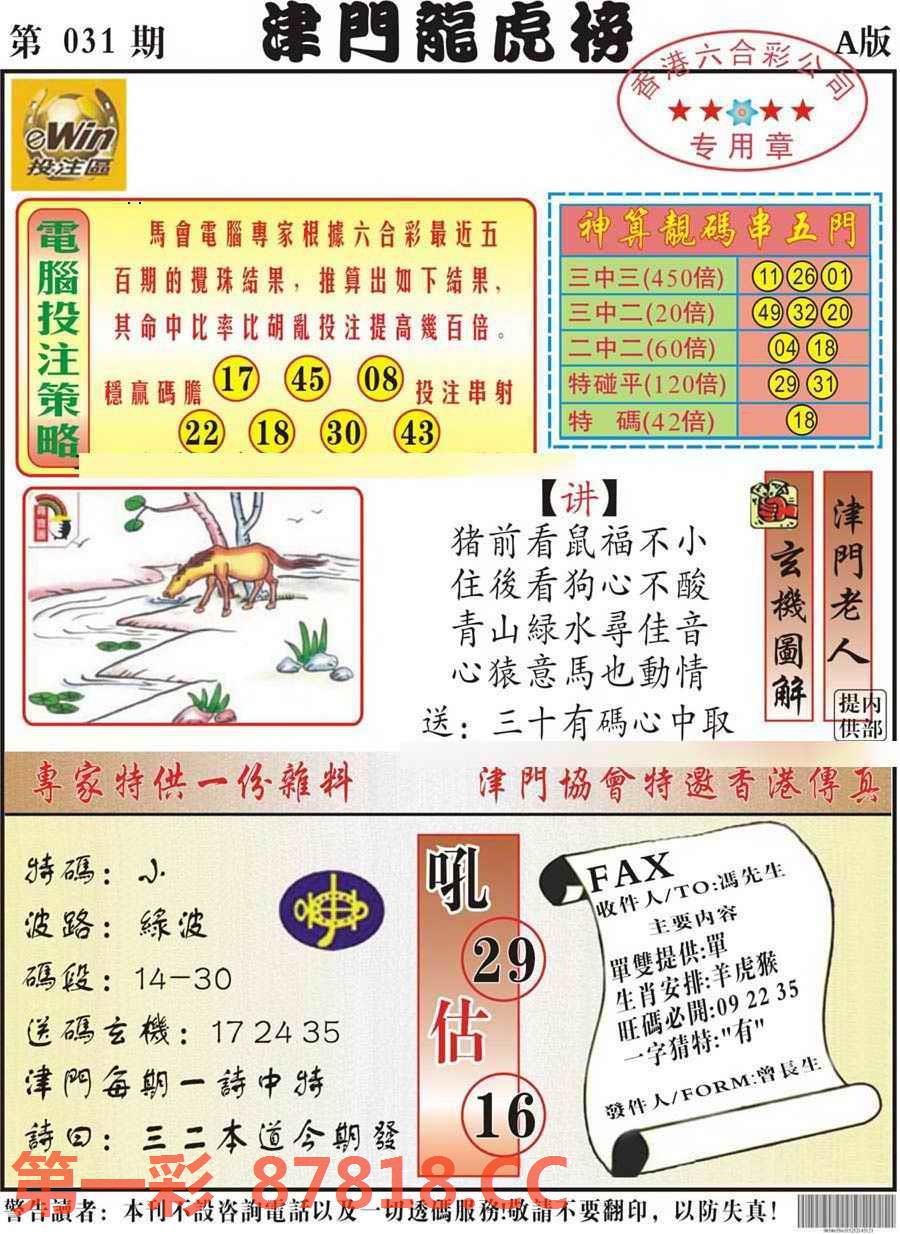 第 031 期
津門龍虎榜
A版
香港六合彩公司
专用章
eWin
投注區
電腦投注策略
馬會電腦專家根據六合彩最近五
百期的攪珠結果，推算出如下結果，
其命中比率比胡亂投注提高幾百倍。
穩贏碼膽 17 45 08 投注串射
22 18 30 43
神算靚碼串五門
三中三(450倍) 11 26 01
三中二(20倍) 49 32 20
二中二(60倍) 04 18
特碰平(120倍) 29 31
特 碼(42倍) 18
【讲】
猪前看鼠福不小
住後看狗心不酸
青山緑水尋佳音
心猿意馬也動情
送：三十有碼心中取
玄機圖解
津門老人
内部提供
專家特供一份雜料
津門協會特邀香港傳真
特碼：小
波路：綠波
碼段：14-30
送碼玄機：17 24 35
津門每期一詩中特
詩曰：三二本道今期發
吼
29
估
16
FAX
收件人/TO:馮先生
主要内容
單雙提供:單
生肖安排:羊虎猴
旺碼必開:09 22 35
一字猜特:"有"
發件人/FORM:曾長生
第一彩 87818.CC
警告讀者：本刊不設咨詢電話以及一切透碼服務!敬請不要翻印，以防失真！